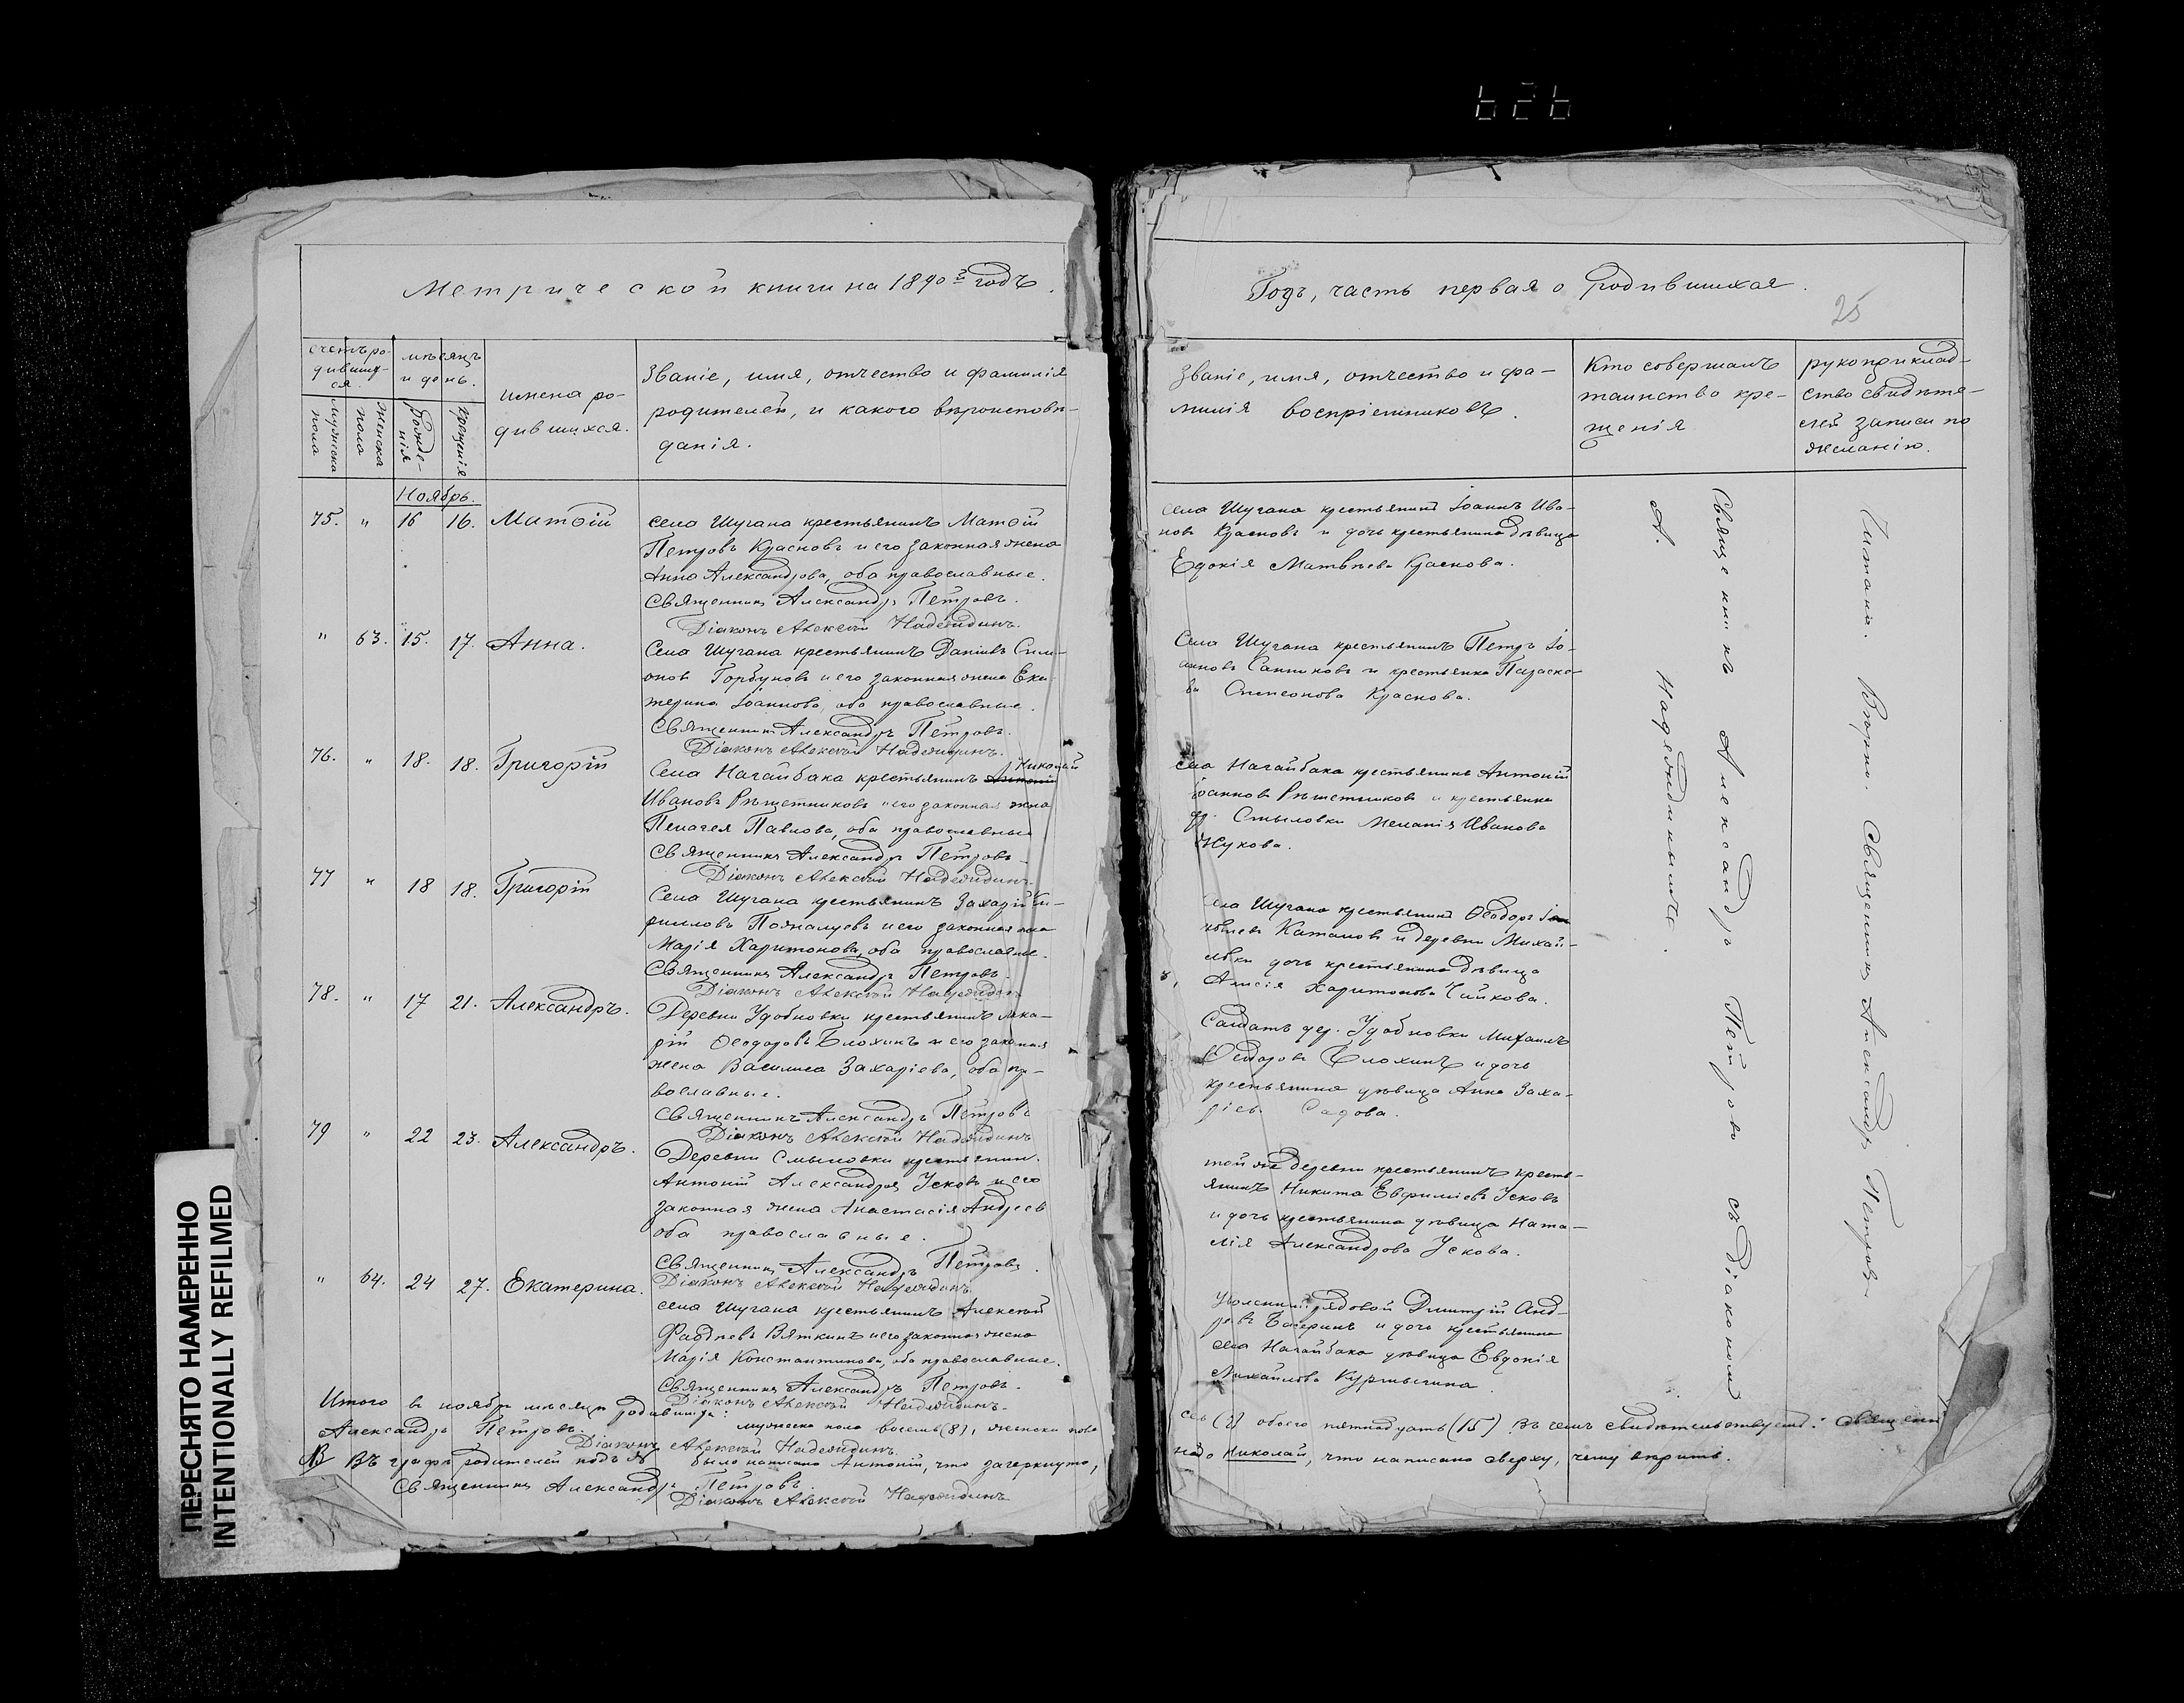 626
Метрической книги на 1890й годъ.
счетъ ро-
дивших-
ся.
мѣсяцъ
и день.
мужеска
пола
женска
пола
рожде-
нія
крещенія
имена ро-
дившихся.
Званіе, имя, отчество и фамилія
родителей, и какого вѣроисповѣ-
данія.
Ноябрь.
75. " 16 16. Матѳій
села Шугана крестьянинъ Матѳій
Петровъ Красновъ и его законная жена
Анна Александрова, оба православные.
Священникъ Александръ Петровъ.
Діаконъ Алексѣй Надеждинъ.
" 63. 15. 17. Анна.
Села Шугана крестьянинъ Даніилъ Сим-
оновъ Горбуновъ и его законная жена Ека-
терина Іоаннова, оба православные.
Священникъ Александръ Петровъ.
Діаконъ Алексѣй Надеждинъ.
76. " 18. 18. Григорій
Николай
Села Нагайбака крестьянинъ Антоній
Ивановъ Рѣшетниковъ и его законная жена
Пелагея Павлова, оба православные
Священникъ Александръ Петровъ.
Діаконъ Алексѣй Надеждинъ.
77 " 18 18. Григорій
Села Шугана крестьянинъ Захарій Ки-
рилловъ и его законная жена
Марія Харитонова, оба православные.
Священникъ Александръ Петровъ.
Діаконъ Алексѣй Надеждинъ
78. " 17 21. Александръ.
Деревни Удобновки крестьянинъ Мака-
рій Ѳеодоровъ Блохинъ и его законная
жена Василиса Захаріева, оба пра-
вославные.
Священникъ Александръ Петровъ
Діаконъ Алексѣй Надеждинъ
79 " 22 23. Александръ.
Деревни Смыловки крестьянин.
Антоній Александровъ Усковъ и его
законная жена Анастасія Андреев
оба православные.
Священникъ Александръ Петровъ.
Діаконъ Алексѣй Надеждинъ.
" 64. 24 27. Екатерина.
села Шугана крестьянинъ Алексѣй
Ѳаддѣевъ Вяткинъ и его законная жена
Марія Константинова, оба православные.
Священникъ Александръ Петровъ.
Діаконъ Алексѣй Надеждинъ.
Итого въ ноябрѣ мѣсяцѣ родившихся: мужеска пола восемь (8), женска пола
Александръ Петровъ.
Діаконъ Алексѣй Надеждинъ.
NB Въ графѣ родителей подъ № было написано Антоній, что зачеркнуто,
Священникъ Александръ Петровъ.
Діаконъ Алексѣй Надеждинъ
Годъ, часть первая о родившихся.
25
Званіе, имя, отчество и фа-
милія воспріемниковъ.
Кто совершалъ
таинство кре-
щенія
рукоприклад-
ство свидѣте-
лей записи по
желанію.
села Шугана крестьянинъ Іоаннъ Ива-
новъ Красновъ и дочь крестьянина дѣвица
Евдокія Матвѣева Краснова.
Села Шугана крестьянинъ Петръ Іо-
анновъ Санниковъ и крестьянка Параске-
ва Симеонова Краснова.
села Нагайбака крестьянинъ Антоній
Іоанновъ Рѣшетниковъ и крестьянка
др. Смыловки Меланія Иванова
Жукова.
села Шугана крестьянинъ Ѳеодоръ
и деревни Михай-
ловки дочь крестьянина дѣвица
Анисія Харитонова Чийкова.
Солдатъ дер. Удобновки Михаилъ
Ѳеодоровъ Блохинъ и дочь
крестьянина дѣвица Анна Заха-
ріева Садова.
той же деревни крестьянинъ кресть-
янинъ Никита Евфиміевъ Усковъ
и дочь крестьянина дѣвица Ната-
лія Александрова Ускова.
Уволенный рядовой Дмитрій Анд-
и дочь крестьянина
села Нагайбака дѣвица Евдокія
Михайлова
Священникъ Александръ Петровъ съ діакономъ
А. Надеждинымъ.
Читалъ. Вѣрно. Священникъ Александръ Петровъ
семь (7) обоего пятнадцать (15). Въ чемъ свидѣтельствуетъ: священн
надо Николай, что написано сверху, чему вѣрить.
ПЕРЕСНЯТО НАМЕРЕННО
INTENTIONALLY REFILMED